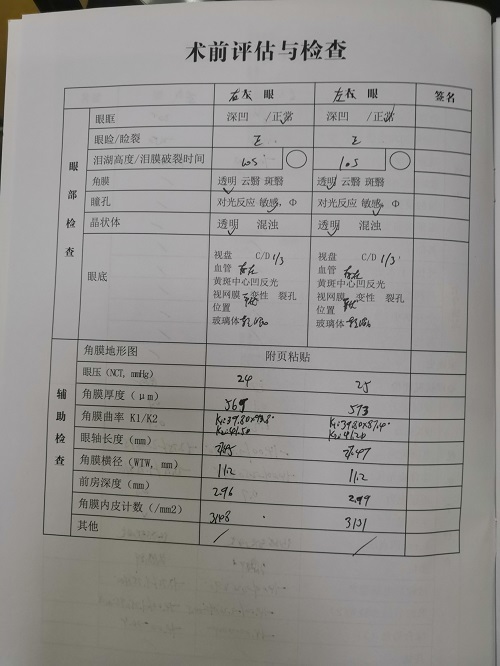 术前评估与检查
右眼 左眼 签名
眼部检查
眼眶 深凹 /正常 深凹 /正常
眼睑/睑裂
泪湖高度/泪膜破裂时间 10s 10s
角膜 透明 云翳 斑翳 透明 云翳 斑翳
瞳孔 对光反应 敏感, Φ 对光反应 敏感, Φ
晶状体 透明 混浊 透明 混浊
眼底
视盘 C/D 1/3 视盘 C/D 1/3
血管 血管
黄斑中心凹反光 黄斑中心凹反光
视网膜 变性 裂孔 视网膜 变性 裂孔
位置 位置
玻璃体 玻璃体
辅助检查
角膜地形图 附页粘贴
眼压（NCT, mmHg） 24 25
角膜厚度（μm） 565 573
角膜曲率 K1/K2 K1:39.80 K1:39.80×87.4°
K2:41.50 K2:41.20
眼轴长度（mm） 27.47
角膜横径（WTW, mm） 11.2 11.2
前房深度（mm） 2.96 2.99
角膜内皮计数（/mm2） 3108 3131
其他 / /